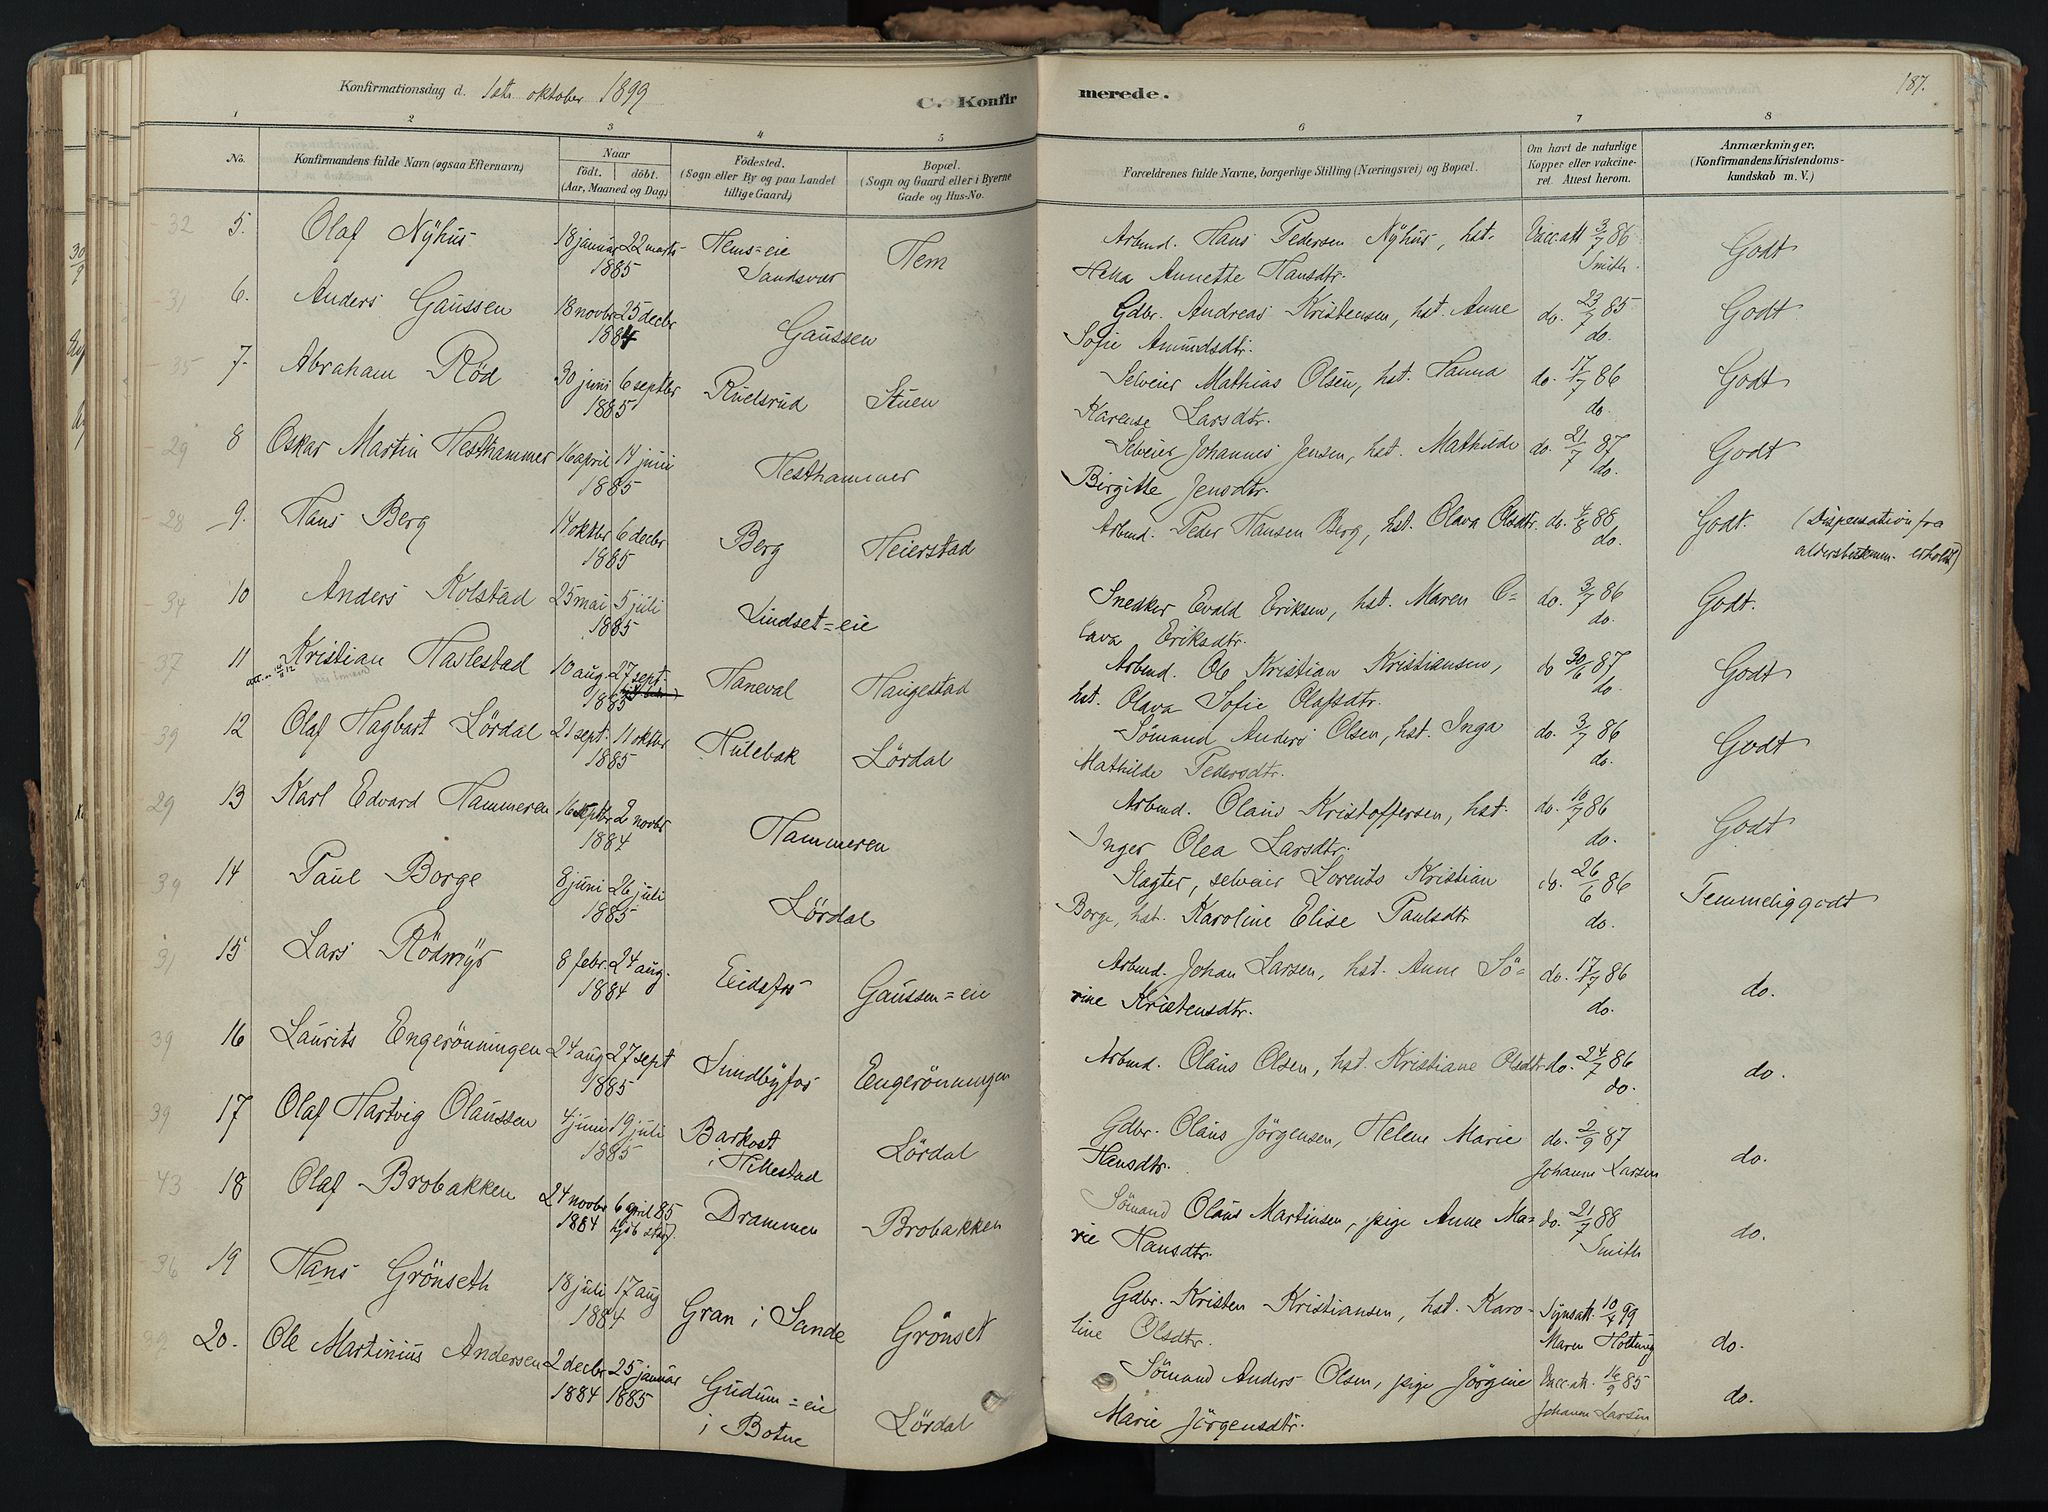 Konfirmationsdag d. 1ste oktober 1899
C. Konfirmerede.
187.
1 2 3 4 5 6 7 8
No.
Konfirmandens fulde Navn (ogsaa Efternavn)
Naar
født. døbt.
(Aar, Maaned og Dag)
Fødested.
(Sogn eller By og paa Landet
tillige Gaard)
Bopæl.
(Sogn og Gaard eller i Byerne
Gade og Hus-No.
Forældrenes fulde Navne, borgerlige Stilling (Næringsvei) og Bopæl.
Om havt de naturlige
Kopper eller vakcine-
ret. Attest herom.
Anmærkninger,
(Konfirmandens Kristendoms-
kundskab m. V.)
32 5. Olaf Nÿhus 18 januar 22 marts 1885 Hems=eie Sandsvær Hem
Arbmd. Hans Pedersen Nÿhus, hst. Vacc. att 3/7 86 Smith. Godt
Helia Annette Hansdtr.
31 6. Anders Gaussen 18 novbr 25 decbr 1884 Gaussen
Gdbr. Andreas Kristensen, hst. Anne do. 23/7 85 do. Godt
Sofie Amundsdtr.
35 7. Abraham Röd 30 juni 6 septbr 1885 Ruelsrud Stuen
Selveier Mathias Olsen, hst. Hanna do. 17/7 86 do. Godt
Karense Larsdtr.
29 8 Oskar Martin Hesthammer 16 april 14 juni 1885 Hesthammer
Selveier Johannes Jensen, hst. Mathilde do. 21/7 87 do. Godt
Birgitte Jensdtr.
28 9. Hans Berg 14 oktbr 6 decbr 1885 Berg Heierstad
Arbmd. Peder Hansen Berg, hst. Olava Olsdtr. do. 4/8 88 do. Godt. (Dispensation fra
aldersbestemm. erholdt)
34 10 Anders Kolstad 25 mai 5 juli 1885 Lindset=eie
Snedker Evald Eriksen, hst. Maren O= do. 3/7 86 do. Godt.
lava Eriksdtr.
37 11 Kristian Havlestad 10 aug. 27 sept. 1885 Haneval Haugestad
Arbmd. Ole Kristian Kristiansen, do 30/6 87 do. Godt
hst. Olava Sofie Olafsdtr.
39 12 Olaf Hagbart Lördal 21 sept. 11 oktbr 1885 Hulebak Lördal
Sömand Anders Olsen, hst. Inga do. 3/7 86 do. Godt
Mathilde Pedersdtr.
29 13 Karl Edvard Hammeren 16 septbr 2 novbr 1884 Hammeren
Arbmd. Olaus Kristoffersen, hst. do. 10/7 86 do. Godt
Inger Olea Larsdtr.
39 14 Paul Borge 8 juni 26 juli 1885 Lördal
Slagter, selveier Lorents Kristian do. 26/6 86 do. Temmelig godt
Borge, hst. Karoline Elise Paulsdtr
31 15 Lars Rödmÿr 8 febr. 24 aug. 1884 Eidsfos Gaussen=eie
Arbmd. Johan Larsen, hst. Anne Sö= do. 17/7 86 do. do.
rine Kristensdtr.
39 16 Laurits Engerönningen 24 aug 27 sept 1885 Sundbÿfos Engerönningen
Arbmd. Olaus Olsen, hst. Kristiane Olsdtr do. 24/7 86 do. do.
39 17 Olaf Hartvig Olaussen 4 juni 19 juli 1885 Barkost i Hillestad Lördal
Gdbr. Olaus Jörgensen, Helene Marie do. 2/9 87 Johann Larsen do.
Hansdtr.
43 18 Olaf Brobakken 24 novbr 1884 6 april 85 Drammen Brobakken
Sömand Olaus Martinsen, pige Anne Ma= do. 21/7 88 Smith do.
rie Hansdtr.
36 19 Hans Grönseth 18 juli 17 aug 1884 Gran i Sande Grönset
Gdbr. Kristen Kristiansen, hst. Karo- Synsatt. 10/4 99 Maren Holtung do.
line Olsdtr.
39 20. Ole Martinius Andersen 2 decbr 1884 25 januar 1885 Gudum=eie i Botne Lördal
Sömand Anders Olsen, pige Jörgine Vacc. att. 16/9 85 Johann Larsen do.
Marie Jörgensdtr.